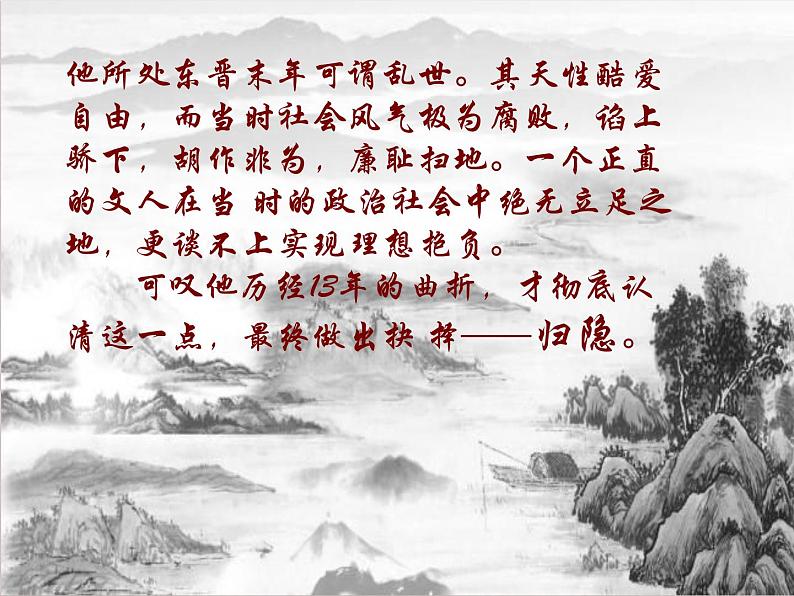 他所处东晋末年可谓乱世。其天性酷爱
自由，而当时社会风气极为腐败，谄上
骄下，胡作非为，廉耻扫地。一个正直
的文人在当 时的政治社会中绝无立足之
地，更谈不上实现理想抱负。
可叹他历经13年的曲折，才彻底认
清这一点，最终做出抉 择——归隐。